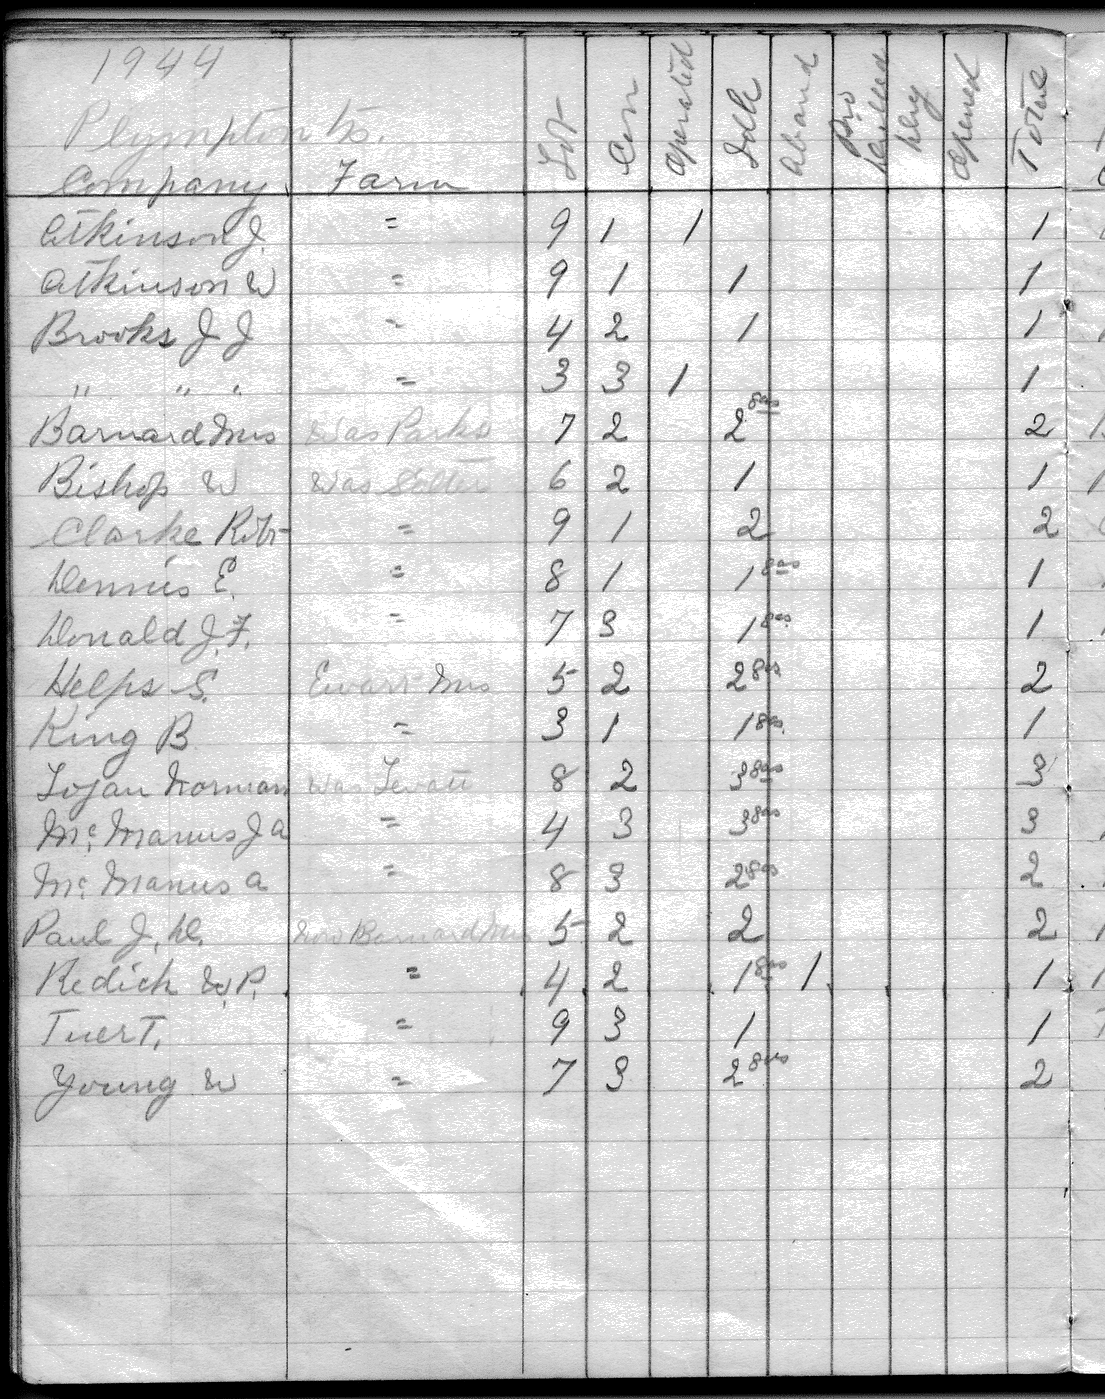 1944
Plympton Tp.
Company Farm Lot Con Operated Idle Aband Pro Drilled Dry Opened Total
Atkinson J. " 9 1 1 1
Atkinson W " 9 1 1 1
Brooks J J " 4 2 1 1
" " " " 3 3 1 1
Barnard Mrs Was Parks 7 2 2 gas 2
Bishop W Was 6 2 1 1
Clarke Robt " 9 1 2 2
Dennis E. " 8 1 1 gas 1
Donald J. F. " 7 3 1 gas 1
Helps S. Ewart Mrs 5 2 2 gas 2
King B " 3 1 1 gas 1
Logan Norman Was 8 2 3 gas 3
Mc Manus J A " 4 3 3 gas 3
Mc Manus A " 8 3 2 gas 2
Paul J. D. Now Barnard Mrs 5 2 2 2
Redick W. P. " 4 2 1 gas 1 1
Tuer T. " 9 3 1 1
Young W " 7 3 2 gas 2